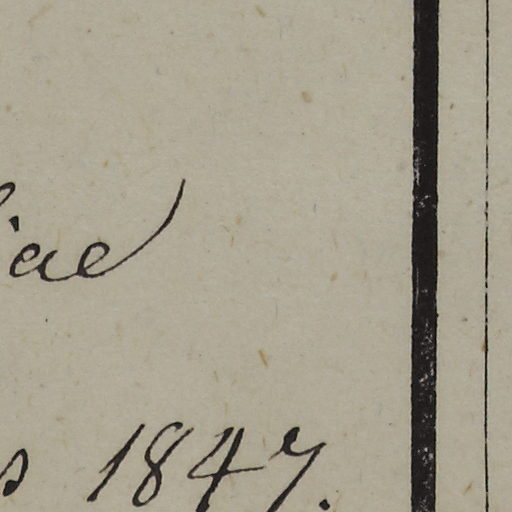 iae
s 1847.